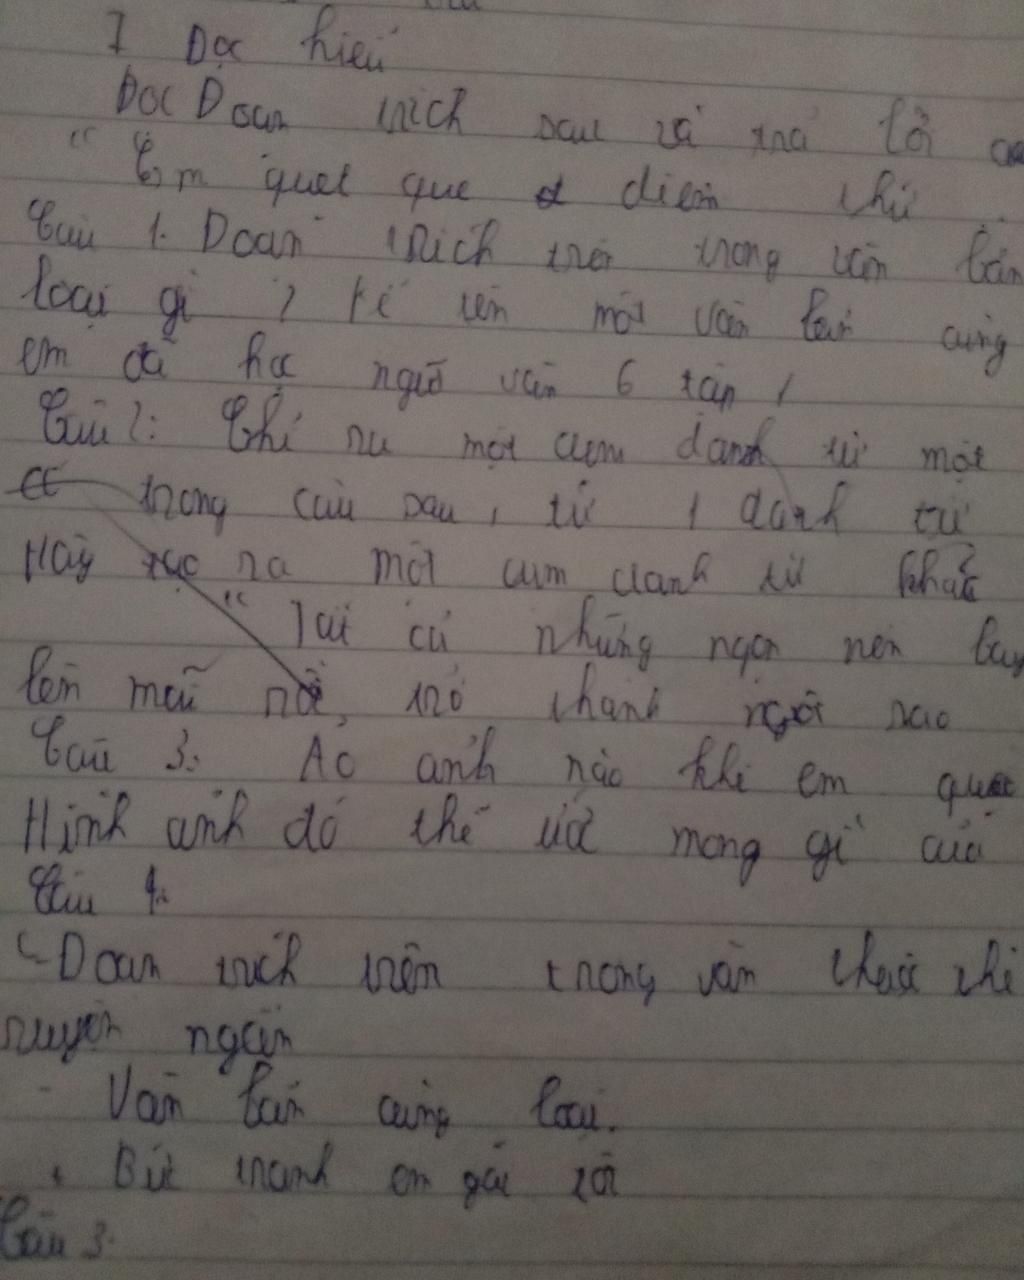 I Đọc hiểu
Đọc Đoạn trích sau và trả lời
" Em quet que diem thứ
Câu 1. Đoạn trích trên trong văn bản
loại gì ? Kể tên một văn bản cùng
em đã học ngữ văn 6 tập 1
Câu 2: Chỉ ra một cụm danh từ một
trong câu sau, từ 1 danh từ
Hãy tạo ra một cụm danh từ khác
" Tất cả những ngọn nến bay
lên mãi rồi, trở thành ngôi sao
Câu 3: Ảo ảnh nào khi em quẹt
Hình ảnh đó thể ước mong gì của
Câu 1:
- Đoạn trích trên trong văn thuộc thể
ruyện ngắn
- Văn bản cùng loại.
+ Bức tranh em gái tôi
Câu 3.